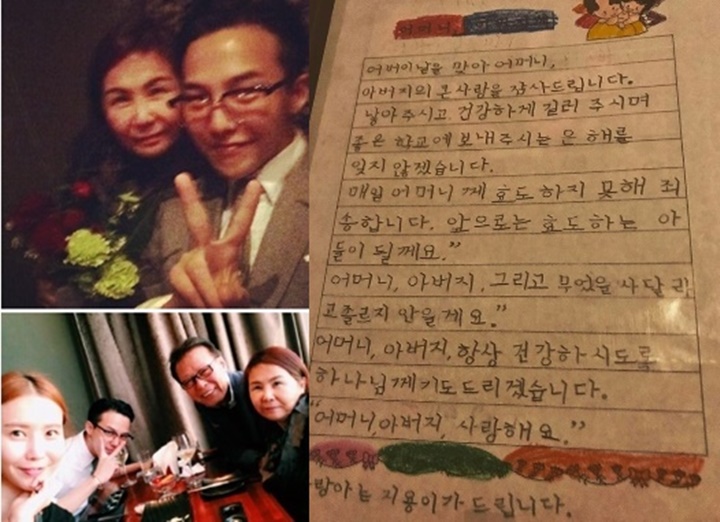 어머니,
어버이날을 맞아 어머니,
아버지의 큰사랑을 감사드립니다.
낳아주시고 건강하게 길러 주시며
좋은 학교에 보내주시는 은혜를
잊지 않겠습니다.
매일 어머니께 효도하지 못해 죄
송합니다. 앞으로는 효도하는 아
들이 될께요."
어머니, 아버지, 그리고 무엇을 사달라
고졸르지 안을게요."
어머니, 아버지, 항상 건강하시도록
하나님께기도드리겠습니다.
"어머니, 아버지, 사랑해요."
지용이가 드립니다.